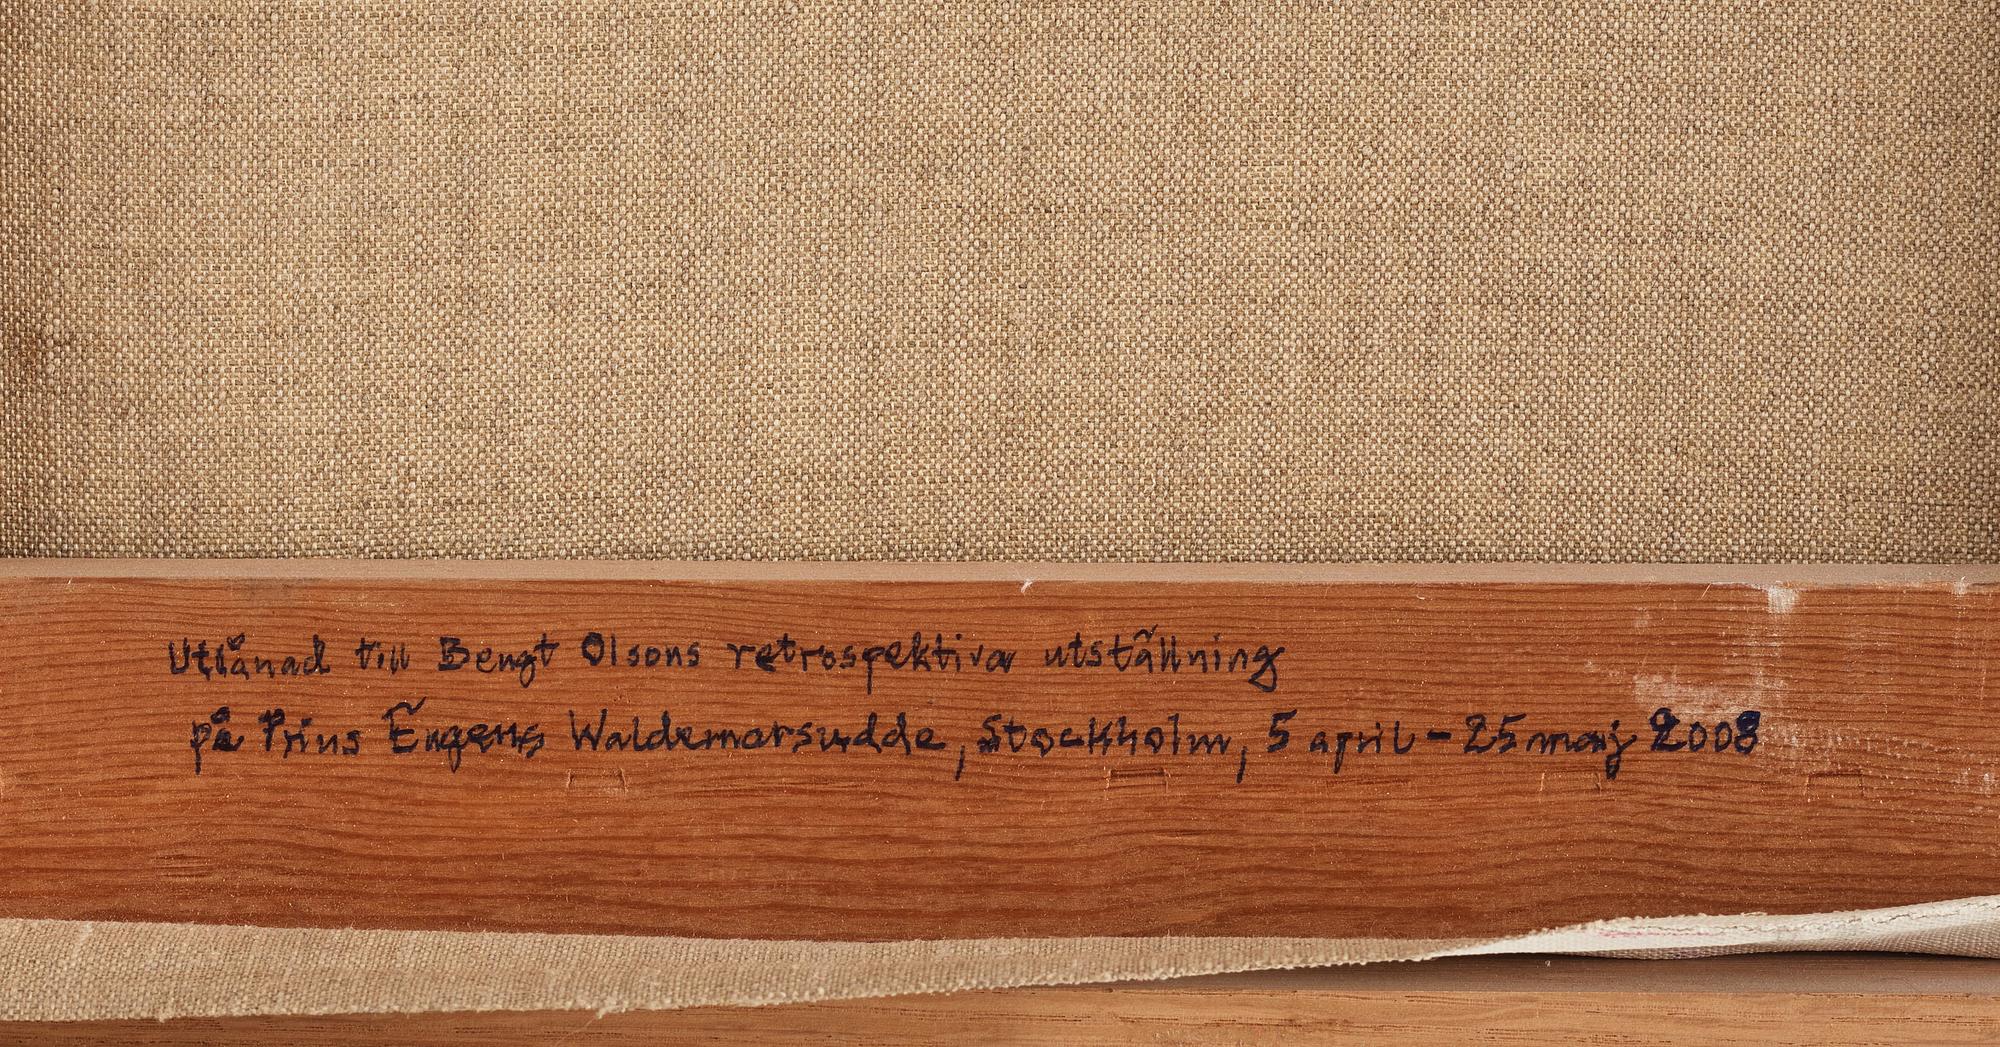 Utlånad till Bengt Olsons retrospektiva utställning
på Prins Eugens Waldemarsudde, Stockholm, 5 april - 25 maj 2008